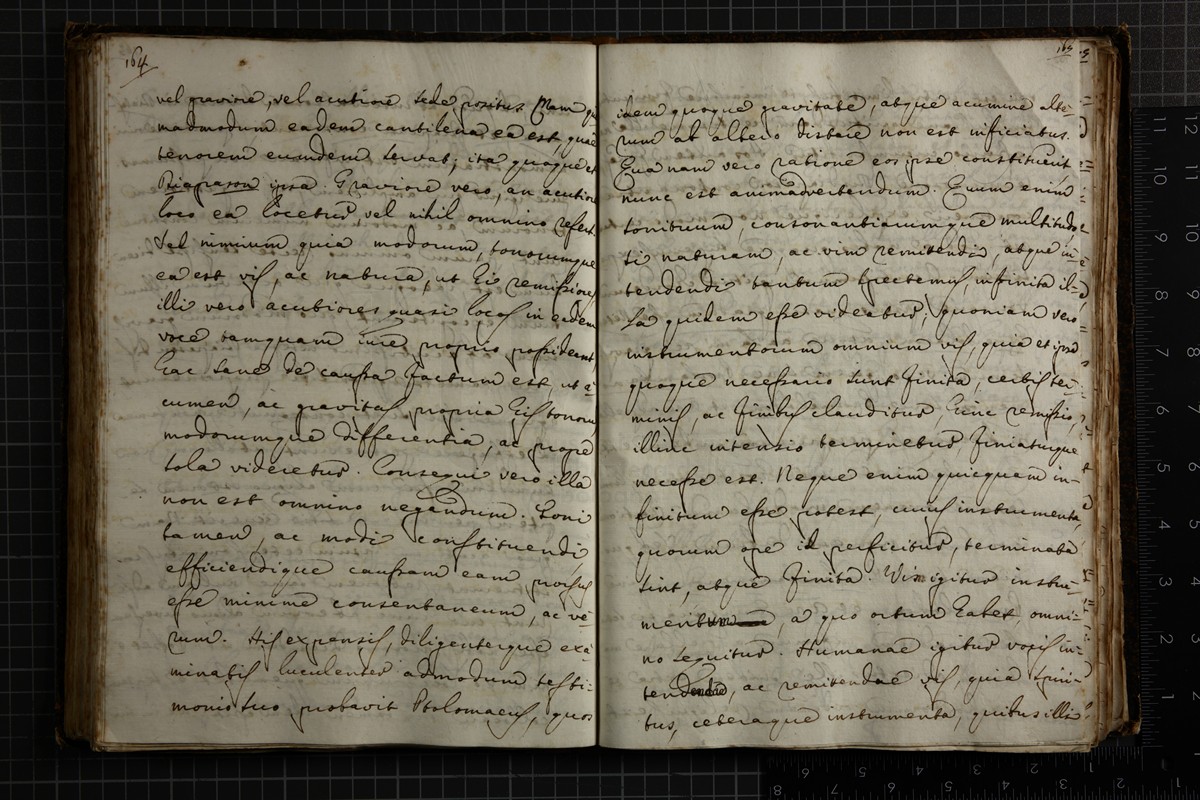 164
vel graviore, vel acutiore sede positus. Nam que
madmodum eadem cantilena ea est, quae
tenorem eumdem servat; ita quoque et
Diapason ipsa. Graviore vero, an acutiore
loco ea locetur, vel nihil omnino refert.
Vel nimium quia modorum, tonorumque
ea est vis, ac natura, ut hi remissiores
illi vero acutiores quasi locos in eadem
voce tamquam iure proprio possideant,
hac sane de caussa factum est, ut a-
cumen, ac gravitas propria his tonorum
modorumque differentia, ac prope
sola videretur. Consequi vero illa
non est omnino negandum. Toni
tamen, ac modi constituendi
efficiendique caussam eam prorsus
esse minime consentaneum, ac ve-
rum. His expensis, diligenterque exa-
minatis luculenter admodum testi-
monio suo probavit Ptolomaeus, quos
165
idem quoque gravitate, atque acumine alte-
rum ab altero distare non est inficiatus.
Qua nam vero ratione eos ipse constituerit
nunc est animadvertendum. Quum enim
sonituum, consonantiarumque multitudo
si naturam, ac vim remittendi, atque in-
tendendi tantum spectemus, infinita il-
la quidem esse videatur; quoniam vero
instrumentorum omnium vis, quia et ipsa
quoque necessario sunt finita, certis ter-
minis, ac finibus clauditur, hinc remissio,
illinc intensio terminetur, finiaturque
necesse est. Neque enim quicquam in-
finitum esse potest, cuius instrumenta,
quorum ope id perficitur, terminata
sint, atque finita. Vim igitur instru-
mentum, a quo ortum habet, omni-
no sequitur. Humanae igitur vocis in-
tendendae, ac remittendae vis, quia spiri-
tus, ceteraque instrumenta, quibus illa